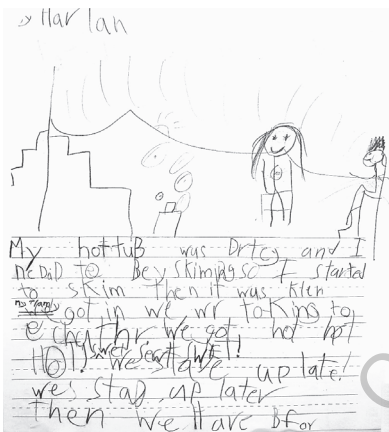 by Harlan
My hottuB was Drtey and I
neDaiD to Bey skimingso I started
to skim then it was klen
my famly got in we wr toking to
echuthr we got hot hot
Hot!
we stare up late!
we stad up later
Then we Hare Bfor